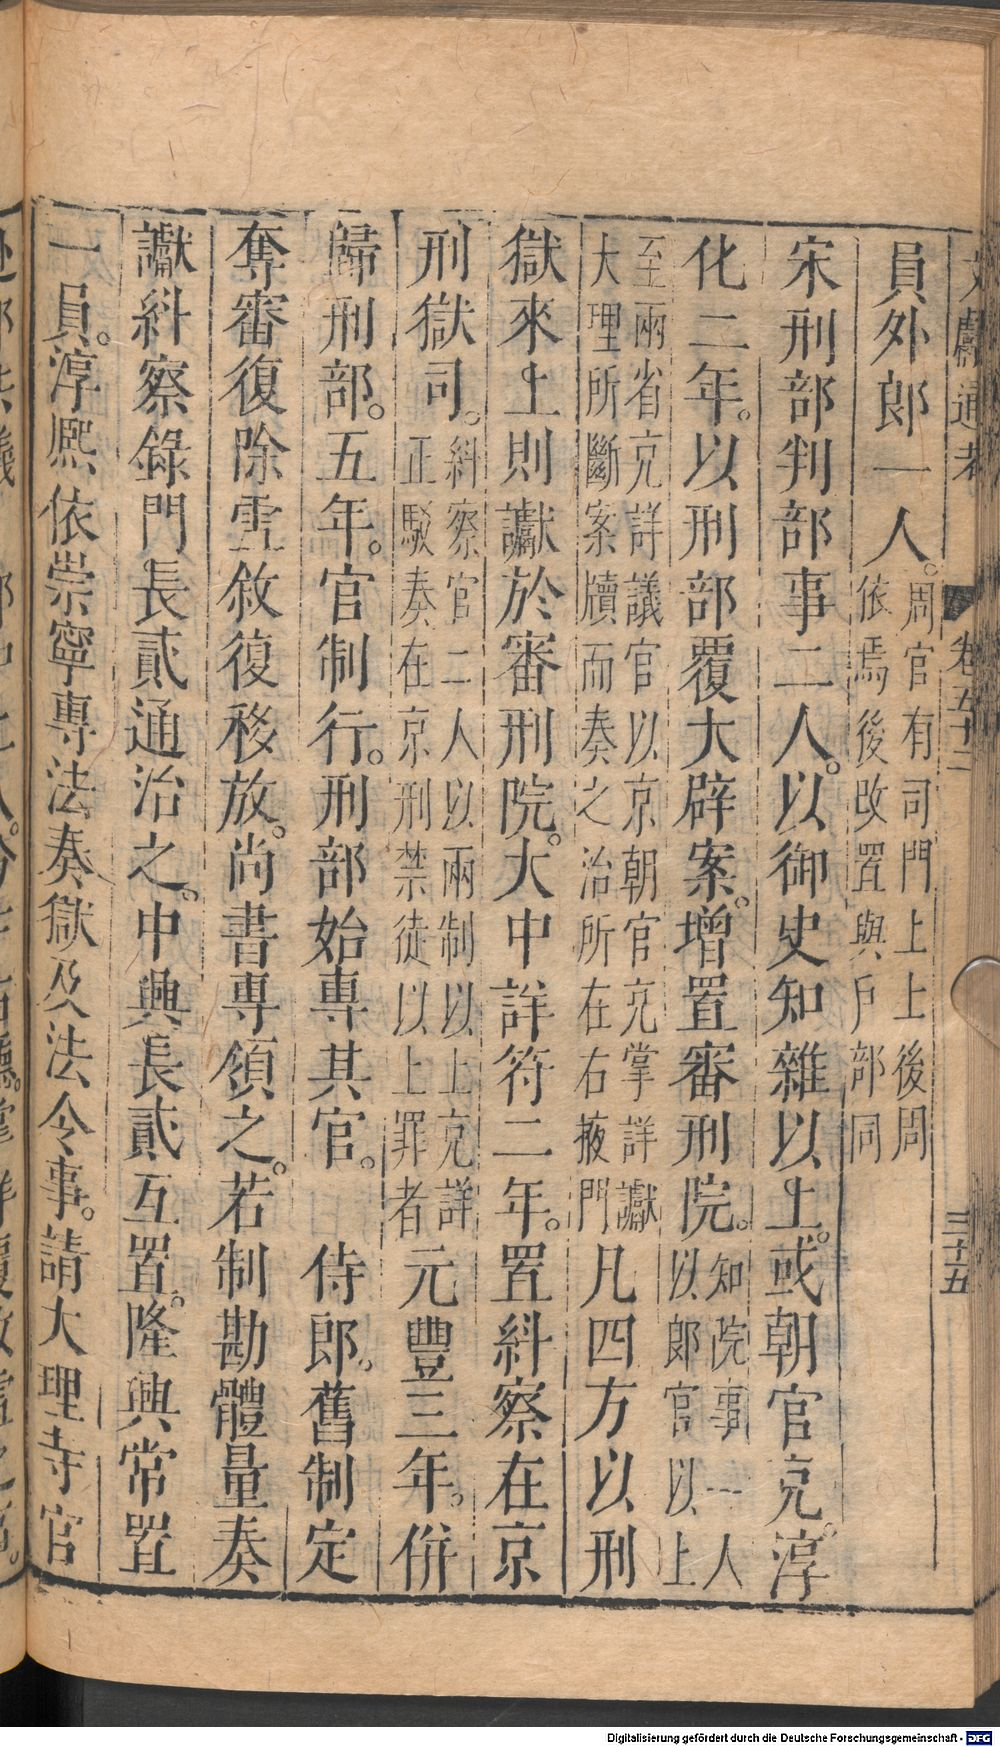 文獻通考 卷五十二 三十五
員外郎一人。周官有司門上士後周依焉後改置與戶部同
宋刑部判部事二人。以御史知雜以上。或朝官充。淳
化二年。以刑部覆大辟案。增置審刑院。知院事一人以郎官以上
至兩省充詳議官以京朝官充掌詳讞大理所斷案牘而奏之治所在右掖門凡四方以刑
獄來上則讞於審刑院。大中詳符二年。置糾察在京
刑獄司。糾察官二人以兩制以上充詳正駁奏在京刑禁徒以上罪者元豐三年。併
歸刑部。五年。官制行。刑部始專其官。 侍郎。舊制定
奪審復除雪敘復移放。尚書專領之。若制勘體量奏
讞糾察錄門長貳通治之。中興長貳互置。隆興常置
一員。淳熙依崇寧專法奏獄及法令事。請大理寺官
Digitalisierung gefördert durch die Deutsche Forschungsgemeinschaft - DFG